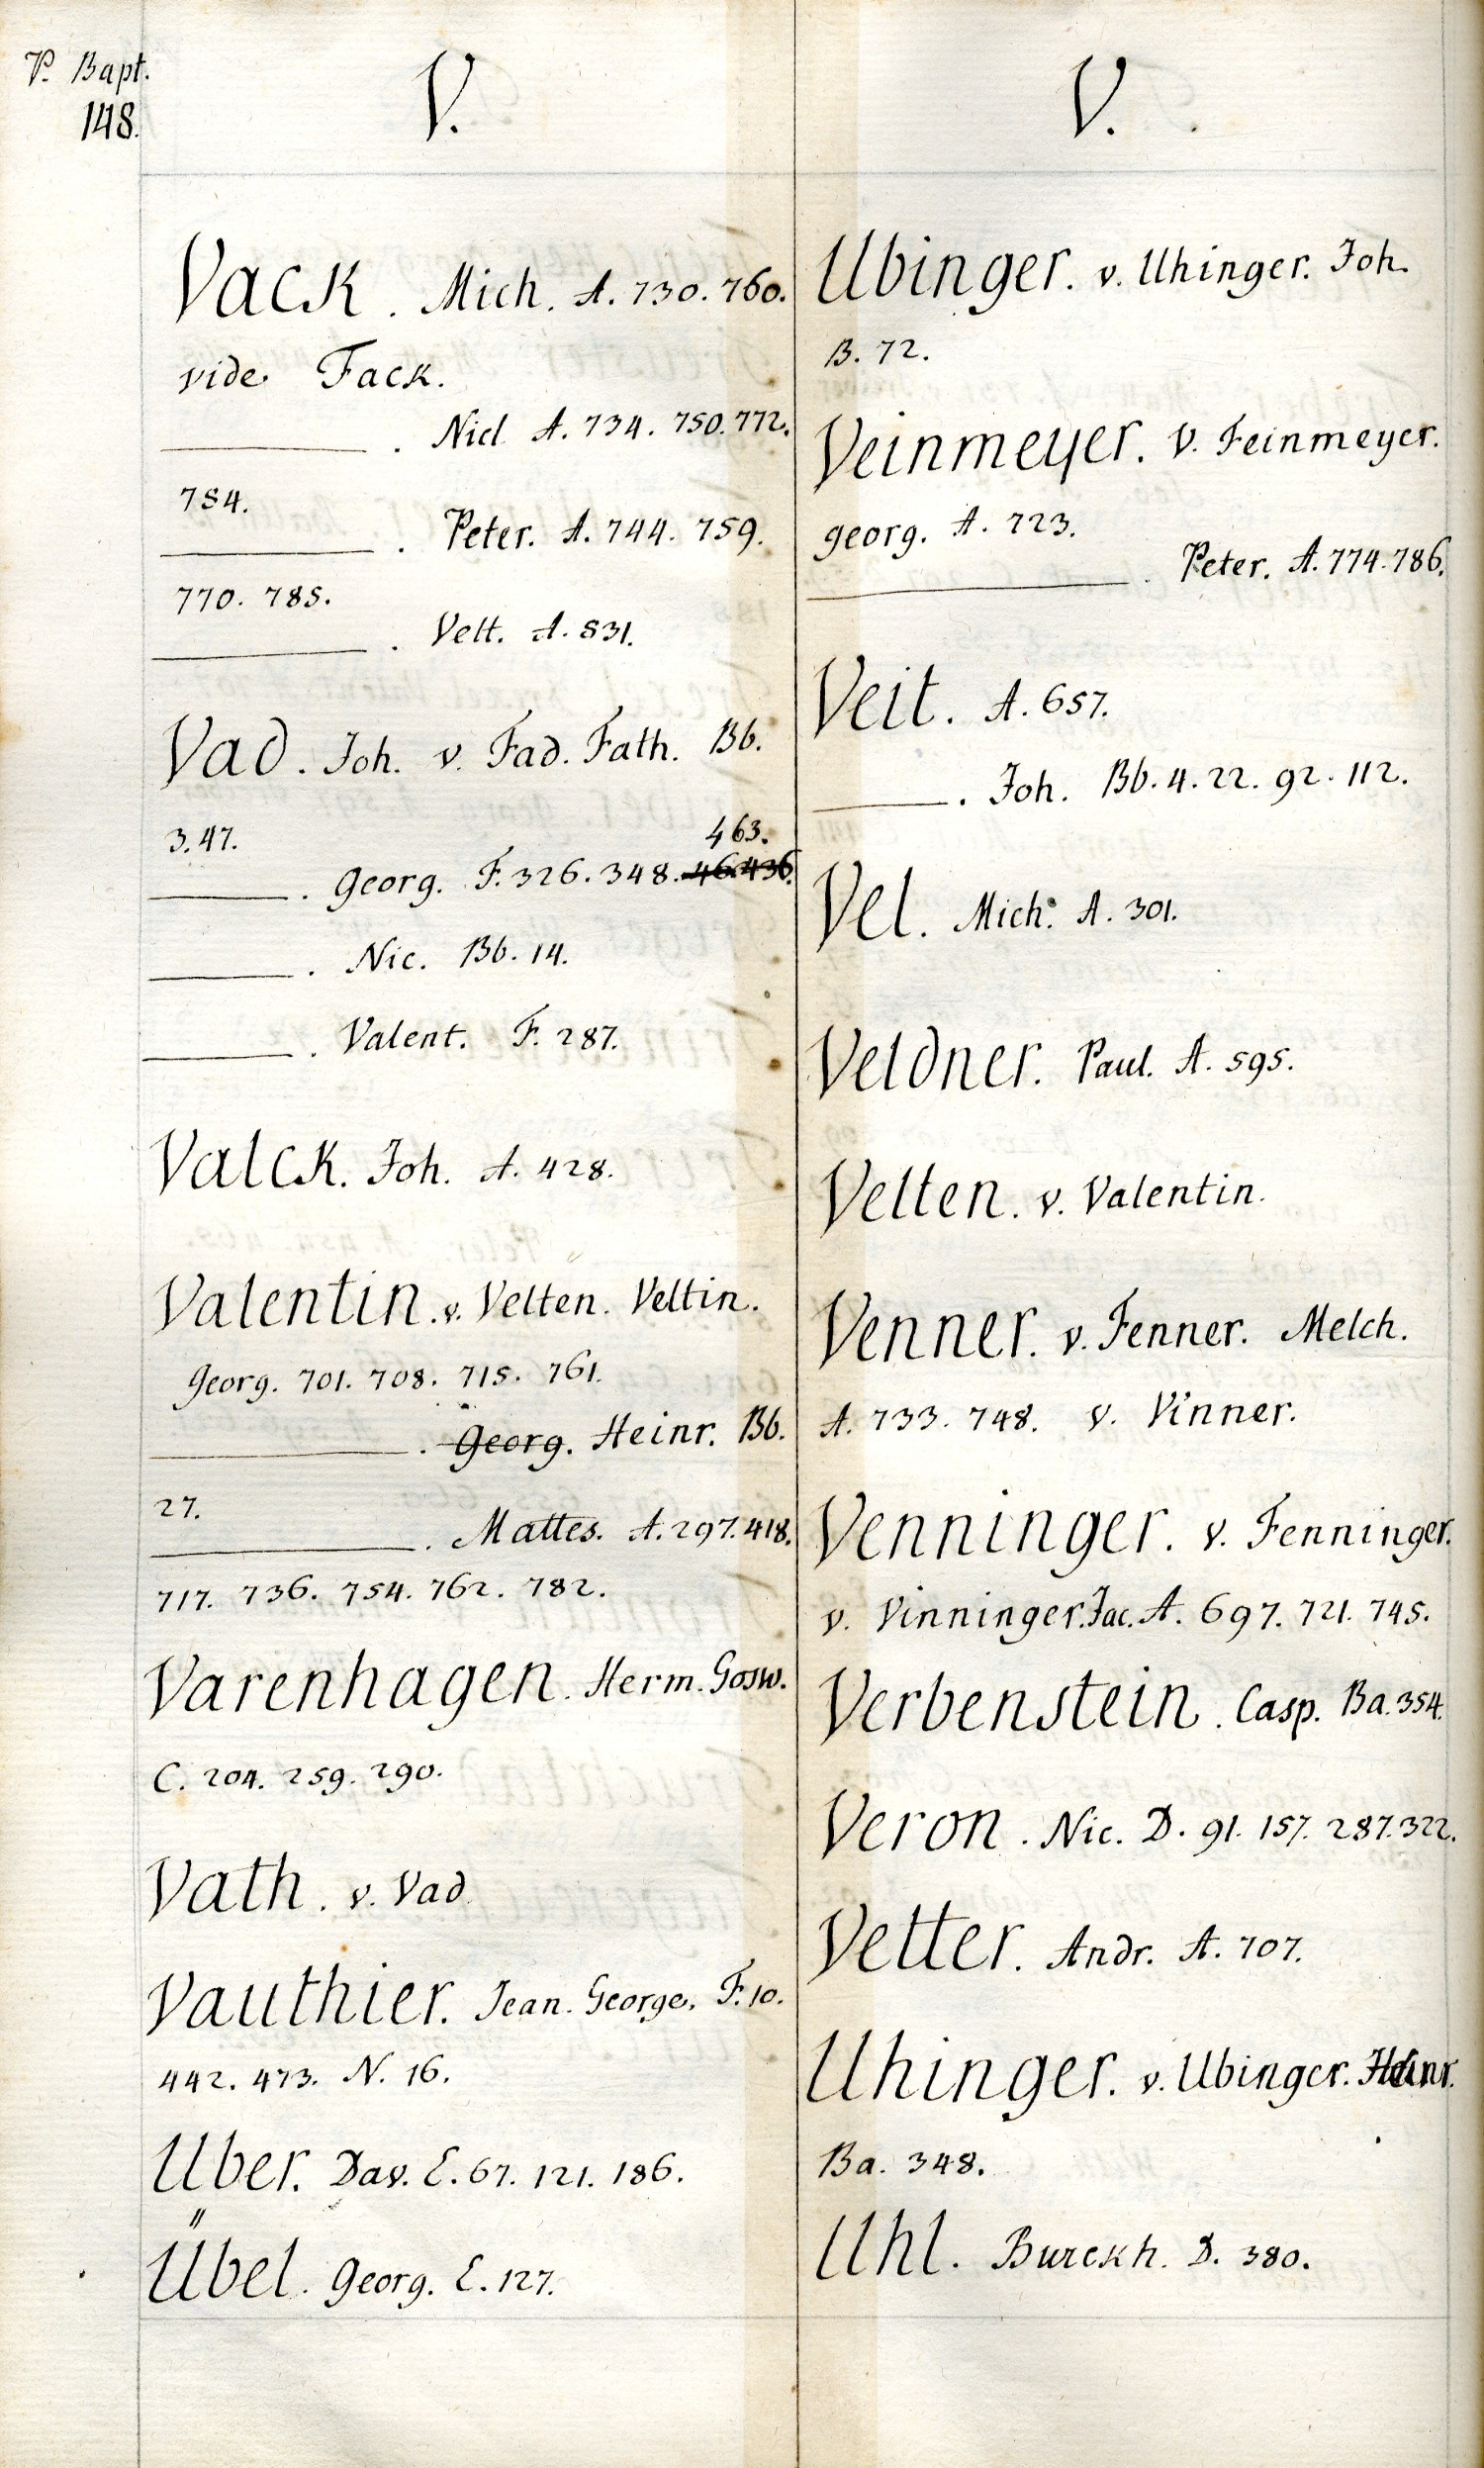 P. Bapt.
148.
V.
Vack. Mich. A. 730. 760.
vide Fack.
. Nicl A. 734. 750. 772.
784.
. Peter. A. 744. 759.
770. 785.
. Velt. A. 831.
Vad. Joh. v. Fad. Fath. Bb.
3. 47.
463.
. Georg. F. 326. 348. 46. 436.
. Nic. Bb. 14.
. Valent. F. 287.
Valck. Joh. A. 428.
Valentin. v. Velten. Veltin.
Georg. 701. 708. 715. 761.
. Georg. Heinr. Bb.
27.
. Mattes. A. 297. 418.
717. 736. 754. 762. 782.
Varenhagen. Herm. Gosw.
C. 204. 259. 290.
Vath. v. Vad
Vauthier. Jean. George. F. 10.
442. 473. N. 16.
Uber. Dav. E. 67. 121. 186.
Übel. Georg. E. 127.
V.
Ubinger. v. Uhinger. Joh.
B. 72.
Veinmeyer. V. Feinmeyer.
georg. A. 723.
. Peter. A. 774. 786.
Veit. A. 657.
. Joh. Bb. 4. 22. 92. 112.
Vel. Mich. A. 301.
Veldner. Paul. A. 595.
Velten. v. Valentin.
Venner. v. Fenner. Melch.
A. 733. 748. v. Vinner.
Venninger. v. Fenninger.
v. Vinninger. Jac. A. 697. 721. 745.
Verbenstein. Casp. Ba. 354.
Veron. Nic. D. 91. 157. 287. 322.
Vetter. Andr. A. 707.
Uhinger. v. Ubinger. Heinr.
Ba. 348.
Uhl. Burckh. D. 380.